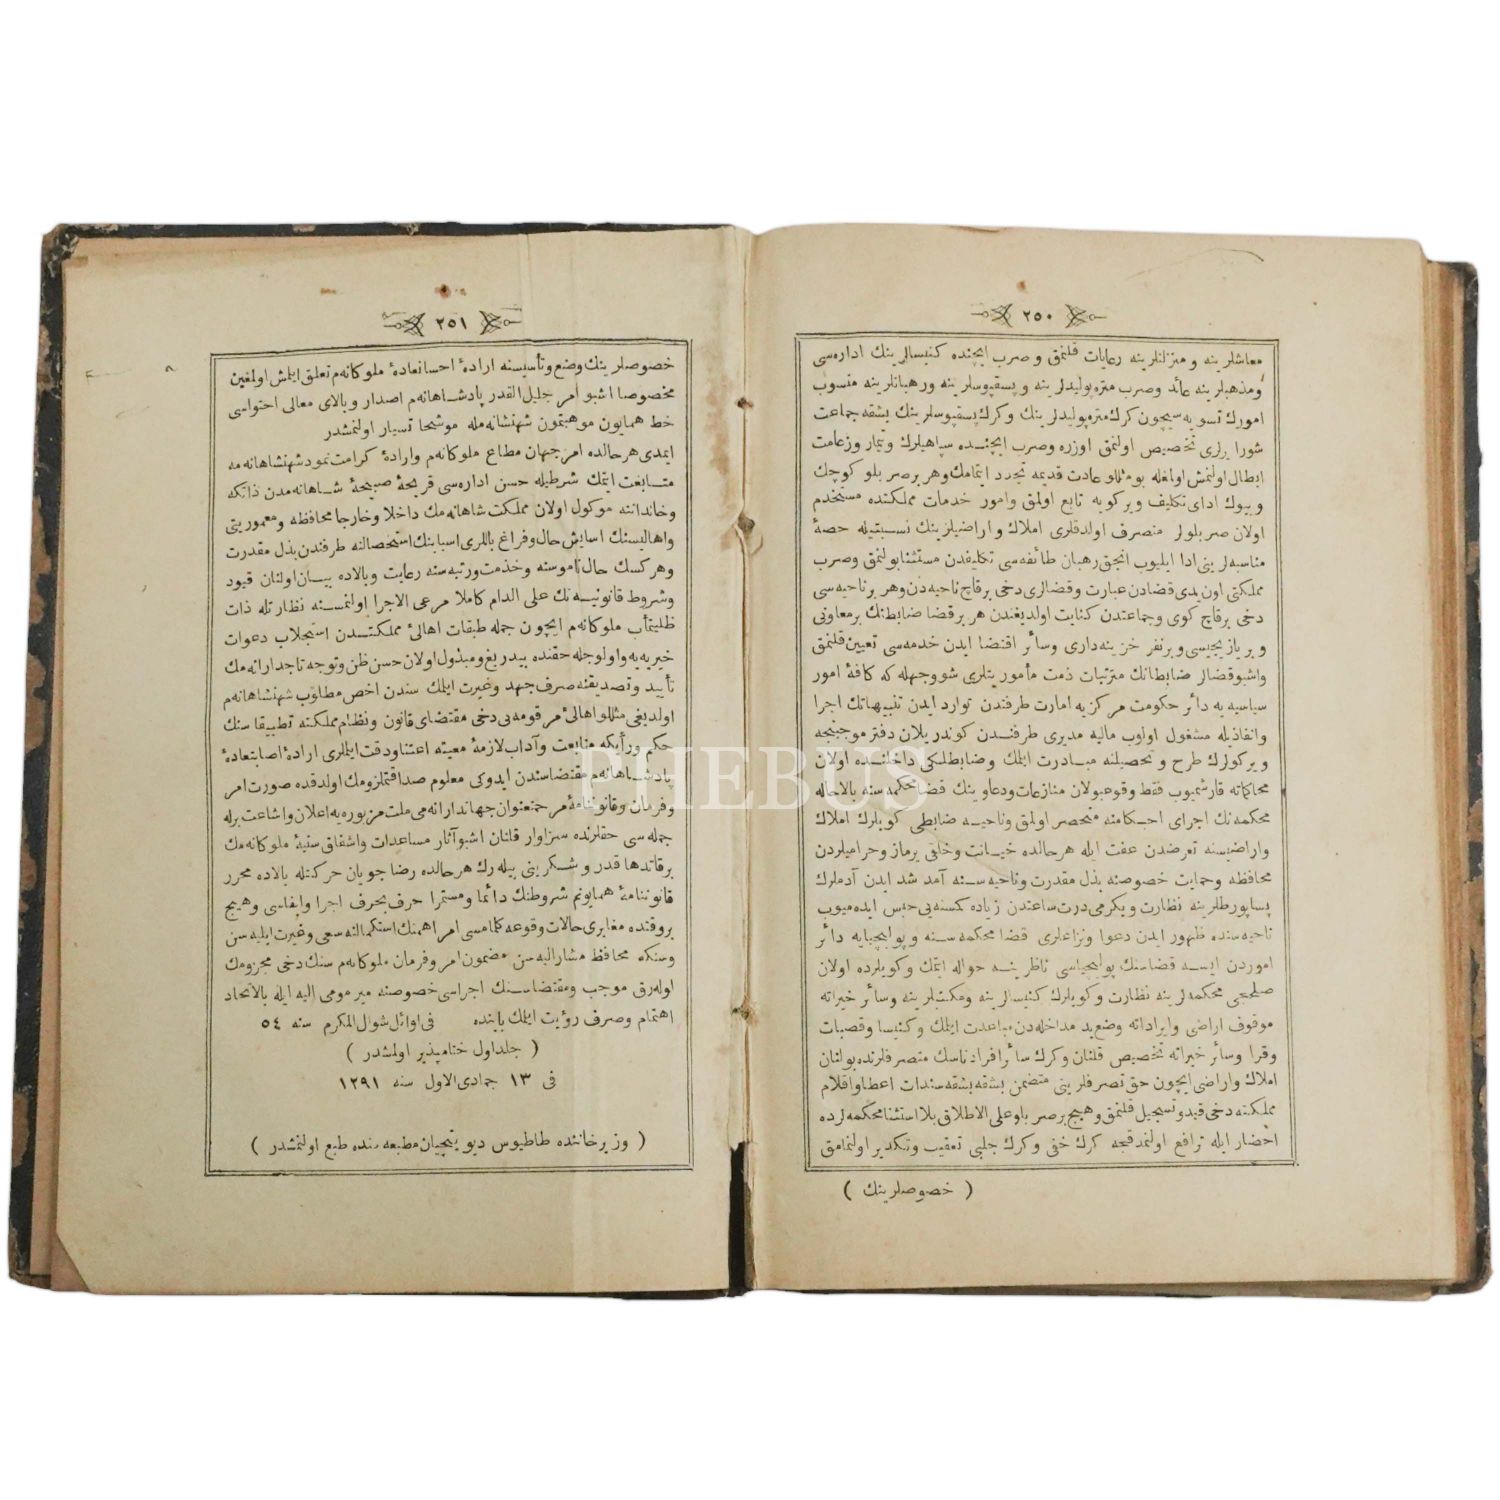 ٢٥٠
معاشلرينه و منزلنلرينه رعايات قلنمق و صرب ايچنده كنيسالرينك اداره‌سى
و مذهبلرينه عائد وصرب متره‌پوليدلرينه و پسقپوسلرينه ورهبانلرينه منسوب
امورك تسويه‌سيچون كرك متره‌پوليدلرينك وكرك پسقپوسلرينك بشقه جماعت
شورالرى تخصيص اولنمق اوزره وصرب ايچنده سپاهيلرك وتيمار وزعامت
ابطال اولنمش اولمغله بومثللو عادت قديمه تجدد ايتمامك وهر بر صربلو كوچك
وبيوك اداى تكليف ويركويه تابع اولمق وامور خدمات مملكتده مستخدم
اولان صربلولر متصرف اولدقلرى املاك واراضيلرينك نسبتيله حصهٔ
مناسبه‌لرينى ادا ايليوب انجق رهبان طائفه‌سى تكليفدن مستثنا بولنمق وصرب
مملكتى اون يدى قضادن عبارت وقضالرى دخى برقاچ ناحيه‌دن وهر بر ناحيه‌سى
دخى برقاچ كوى وجماعتدن كنايت اولديغندن هر بر قضا ضابطنك بر معاونى
و بر يازيجيسى و برنفر خزينه‌دارى وسائر اقتضا ايدن خدمه‌سى تعيين قلنمق
واشبو قضالر ضابطانك مترتبات ذمت مأموريتلرى شو وجهله كه كافهٔ امور
سياسيه‌يه دائر حكومت مركزيه امارت طرفندن توارد ايدن تنبيهاتك اجرا
وانفاذيله مشغول اولوب ماليه مديرى طرفندن كوندريلان دفتر موجبنجه
ويركولرك طرح و تحصيلنه مبادرت ايلمك وضابطلكى داخلنده اولان
محاكماته قارشميوب فقط وقوعبولان منازعات ودعاوينك قضا محكمه‌سنه بالاحاله
محكمه‌نك اجراى احكامنه منحصر اولمق وناحيه ضابطى كويلرك املاك
واراضيسنه تعرضدن عفت ايله هر حالده خيانت وخلقى يرماز وحراميلردن
محافظه وحمايت خصوصنه بذل مقدرت وناحيه‌سنه آمد شد ايدن آدملرك
پساپورطلرينه نظارت ويكرمى درت ساعتدن زياده كمسنه‌يى حبس ايده‌ميوب
ناحيه‌سنده ظهور ايدن دعوا ونزاعلرى قضا محكمه‌سنه و پوليچيايه دائر
اموردن ايسه قضاسنك پوليچياسى ناظرينه حواله ايتمك وكويلرده اولان
صلحجى محكمه‌لرينه نظارت وكويلرك كنيسالرينه ومكتبلرينه وسائر خيراته
موقوف اراضى وايراداته وضع يد مداخله‌دن مباعدت ايلمك وكنيسا وقصبات
وقرا وسائر خيراته تخصيص قلنان وكرك سائر افراد ناسك متصرفلرنده بولنان
املاك واراضى ايچون حق تصرفلرينى متضمن بشقه بشقه سندات اعطا واقلام
مملكته دخى قيد و تسجيل قلنمق وهيچ بر صربلو على الاطلاق بلا استثنا محكمه‌لرده
احضار ايله ترافع اولنمدقجه كرك خفى وكرك جلى تعقيب وتكدير اولنمامق
( خصوصلرينك )
٢٥١
خصوصلرينك وضع وتأسيسنه ارادهٔ احسانعادهٔ ملوكانه‌م تعلق ايلمش اولمغين
مخصوصا اشبو امر جليل القدر پادشاهانه‌م اصدار و بالاى معالى احتواسى
خط همايون موهبتمون شهنشانه‌مله موشحا تسيار اولنمشدر
ايمدى هر حالده امر جهان مطاع ملوكانه‌م وارادهٔ كرامت نمود شهنشاهانه‌مه
متابعت ايتمك شرطيله حسن اداره‌سى قريحهٔ صبيحهٔ شاهانه‌مدن ذاتكه
وخاندانته موكول اولان مملكت شاهانه‌مك داخلا وخارجا محافظه و معموريتى
واهاليسنك اسايش حال وفراغ باللرى اسبابنك استحصالنه طرفندن بذل مقدرت
وهركسك حال ناموسنه وخذمت ورتبه‌سنه رعايت وبالاده بيان اولنان قيود
وشروط قانونيه‌نك على الدام كاملا مرعى الاجرا اولنمسنه نظارتله ذات
ظليتمآب ملوكانه‌م ايچون جمله طبقات اهالىٔ مملكتدن استجلاب دعوات
خيريه‌يه واولوجله حقنده بيدريغ ومبذول اولان حسن ظن وتوجه تاجدارانه‌مك
تأييد وتصديقنه صرف جهد وغيرت ايلمك سندن اخص مطلوب شهنشاهانه‌م
اولديغى مثللو اهالىٔ مرقومه‌يى دخى مقتضاى قانون ونظام مملكته تطبيقا سنك
حكم ورأيكه متابعت وآداب لازمهٔ معيته اعتنا ودقت ايلملرى ارادهٔ اصابتعادهٔ
پادشاهانه‌م مقتضاسندن ايدوكى معلوم صداقتملزومك اولدقده صورت امر
وفرمان وقانوننامهٔ مرحمتعنوان جهاندارانه‌مى ملت مزبوره‌يه اعلان واشاعت برله
جمله‌سى حقلرنده سزاوار قلنان اشبو آثار مساعدات واشفاق سنيهٔ ملوكانه‌مك
برقاتدها قدر و شكرينى بيله‌رك هر حالده رضا جويان حركتله بالاده محرر
قانوننامهٔ همايونم شروطنك دائما ومستمرا حرف بحرف اجرا وايفاسى وهيچ
بروقتده مغايرى حالات وقوعه كلمامسى امر اهمنك استكمالنه سعى وغيرت ايليه‌سن
وسنكه محافظ مشار اليه‌سن مضمون امر وفرمان ملوكانه‌م سنك دخى مجزومك
اوله‌رق موجب ومقتضاسنك اجراسى خصوصنه مير مومى اليه ايله بالاتحاد
اهتمام وصرف رؤيت ايلمك بابنده فى اوائل شوال المكرم سنه ٥٤
( جلد اول ختامپذير اولمشدر )
فى ١٣ جمادى الاول سنه ١٢٩١
( وزيرخاننده طاطيوس ديويتجيان مطبعه‌سنده طبع اولنمشدر )
PHEBUS